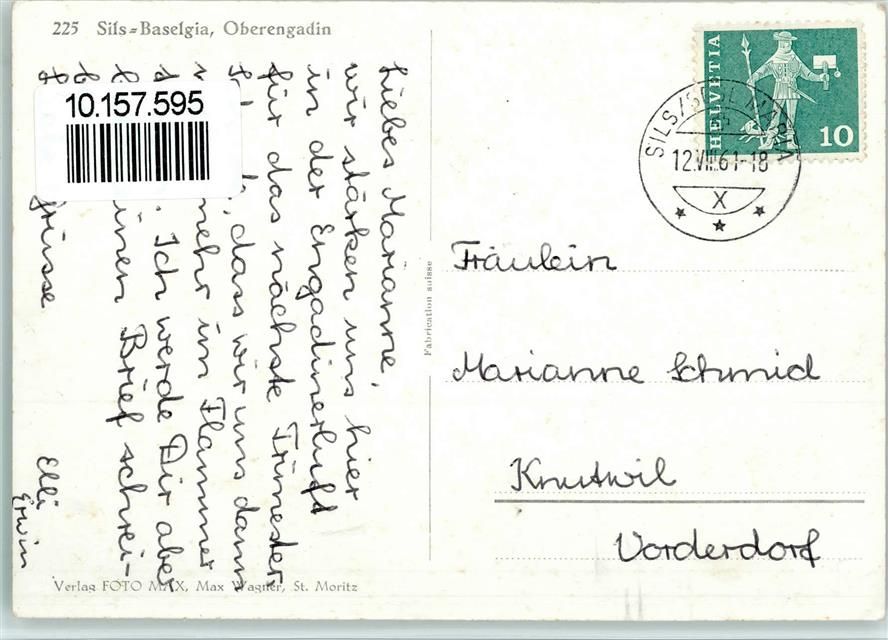 225 Sils=Baselgia, Oberengadin
10.157.595
HELVETIA
10
SILS/SEGL MARIA
12.VIII.61-18
X
Liebes Marianne,
wir stärken uns hier
in der Engadinerluft
für das nächste Trimester
dass wir uns dann
mehr im Flammer
Ich werde Dir aber
Brief schrei-
Grüsse
Elli
Erwin
Fabrication suisse
Fräulein
Marianne Schmid
Knutwil
Vorderdorf
Verlag FOTO MAX, Max Wagner, St. Moritz